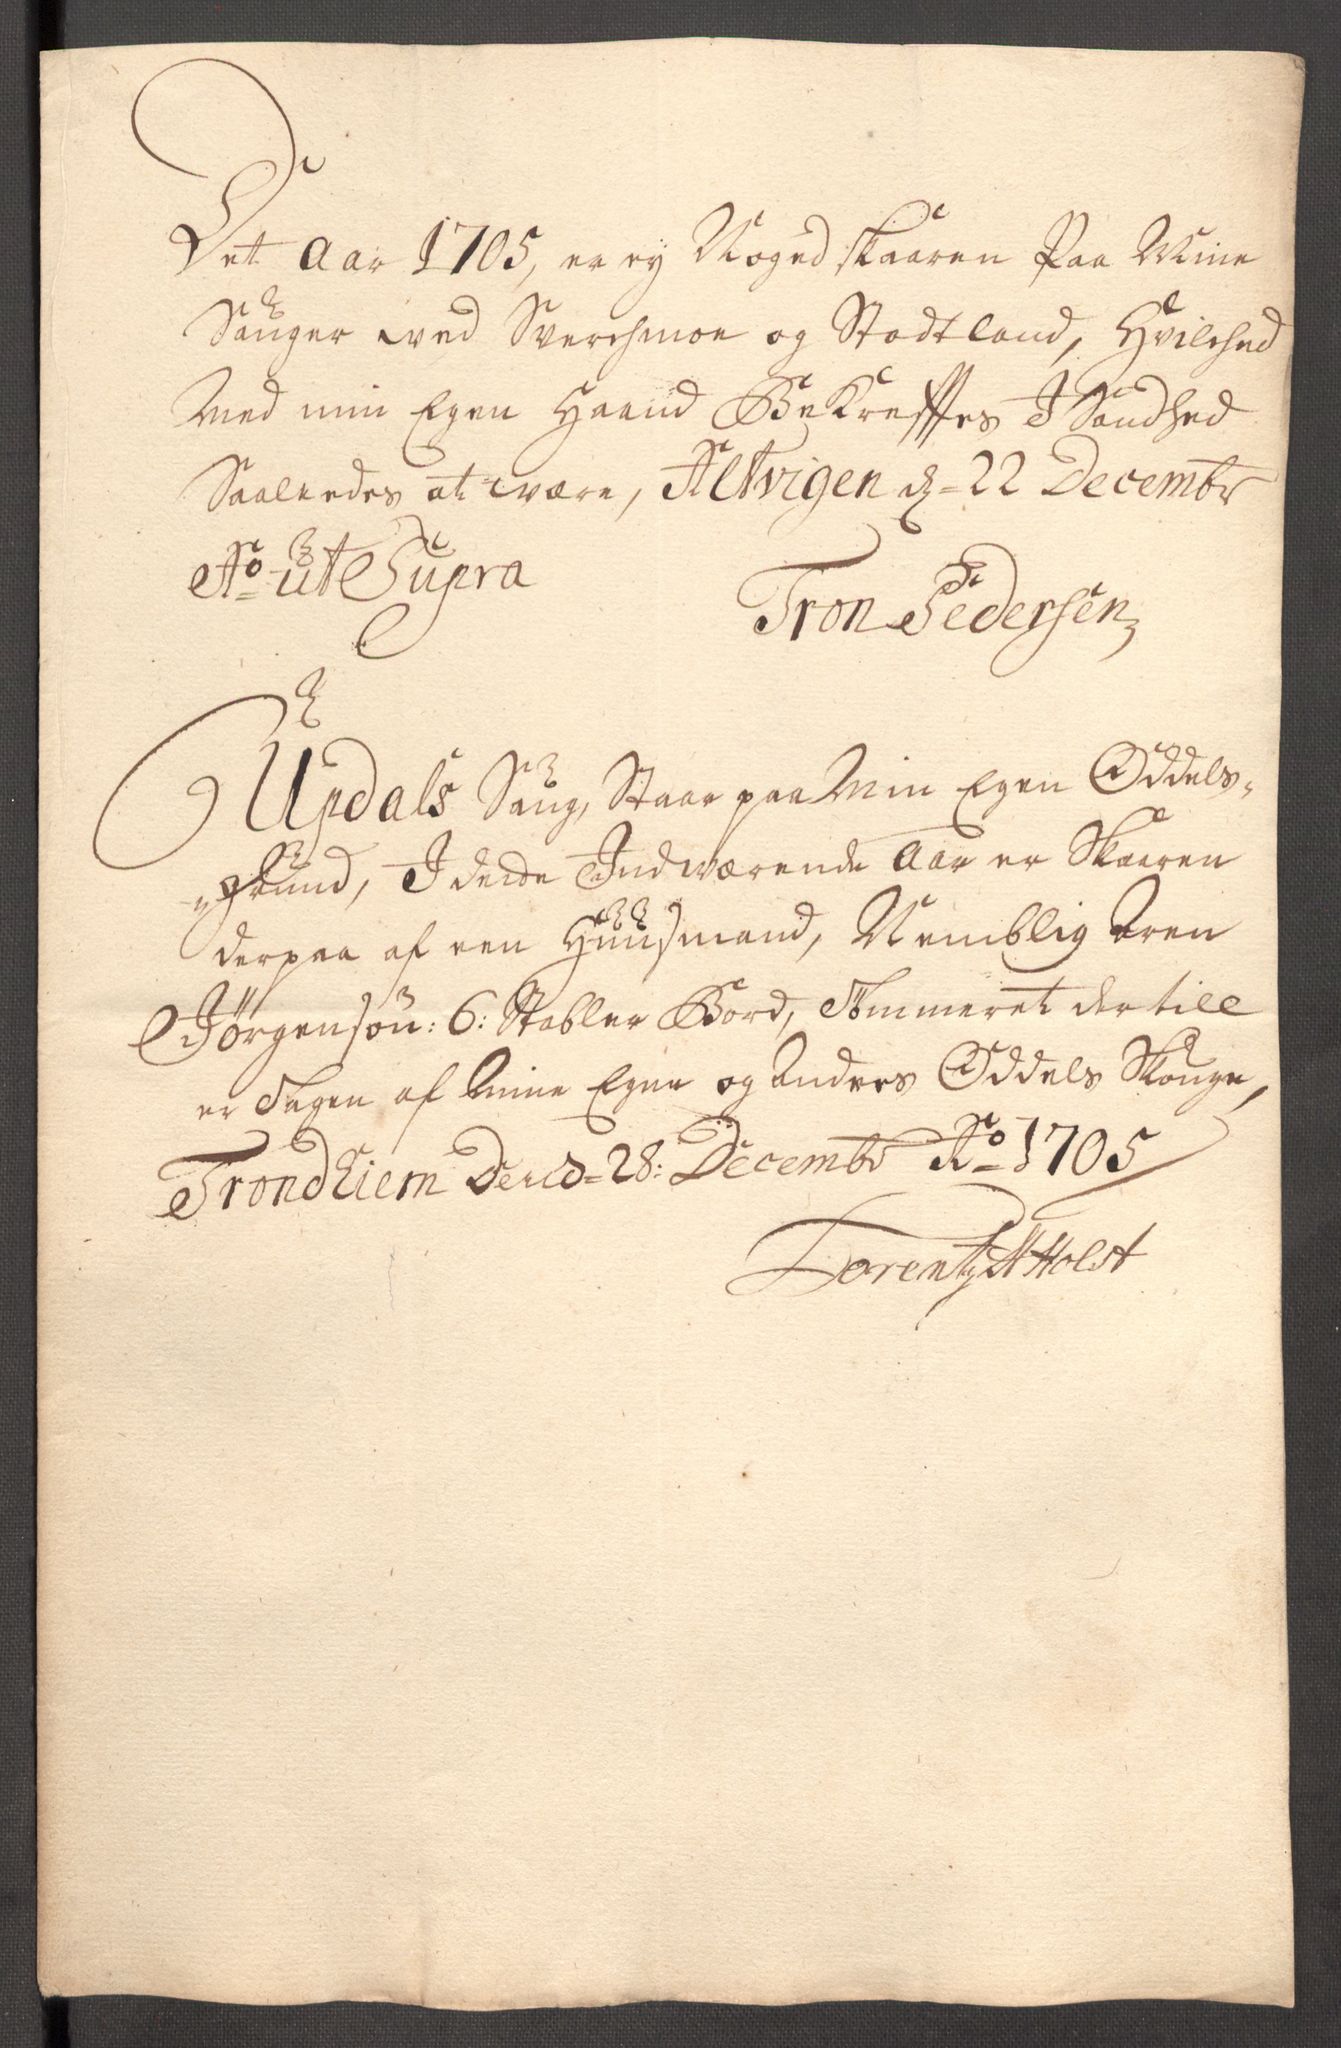 Det Aar 1705, er ey Noged skaaren Paa Mine
Sauger wed Sverchmoe og Stodtland, Hvilched
Med min Egen Haand BeKreffes I Sandhed
Saaledes at være, Altvigen d= 22 Decembr
Ao= ut Supra
Tron Pedersen
Updals Saug, Staar paa Min Egen Oddels-
grund, I dette Indwærende Aar er Skaaren
derpaa af een Huusmand, Nemblig Aren
Jørgensøn: 6: Stabler Bord, Tømmeret der till
er Tagen af Mine Egne og Anders Oddels Skouge,
Trondhiem Den d= 28: Decembr Ao= 1705
Lorentz M Holst